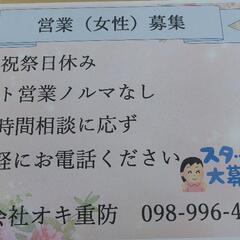 営業（女性）募集
祝祭日休み
ト営業ノルマなし
時間相談に応ず
軽にお電話ください
スタッ
大募
会社オキ重防 098-996-4